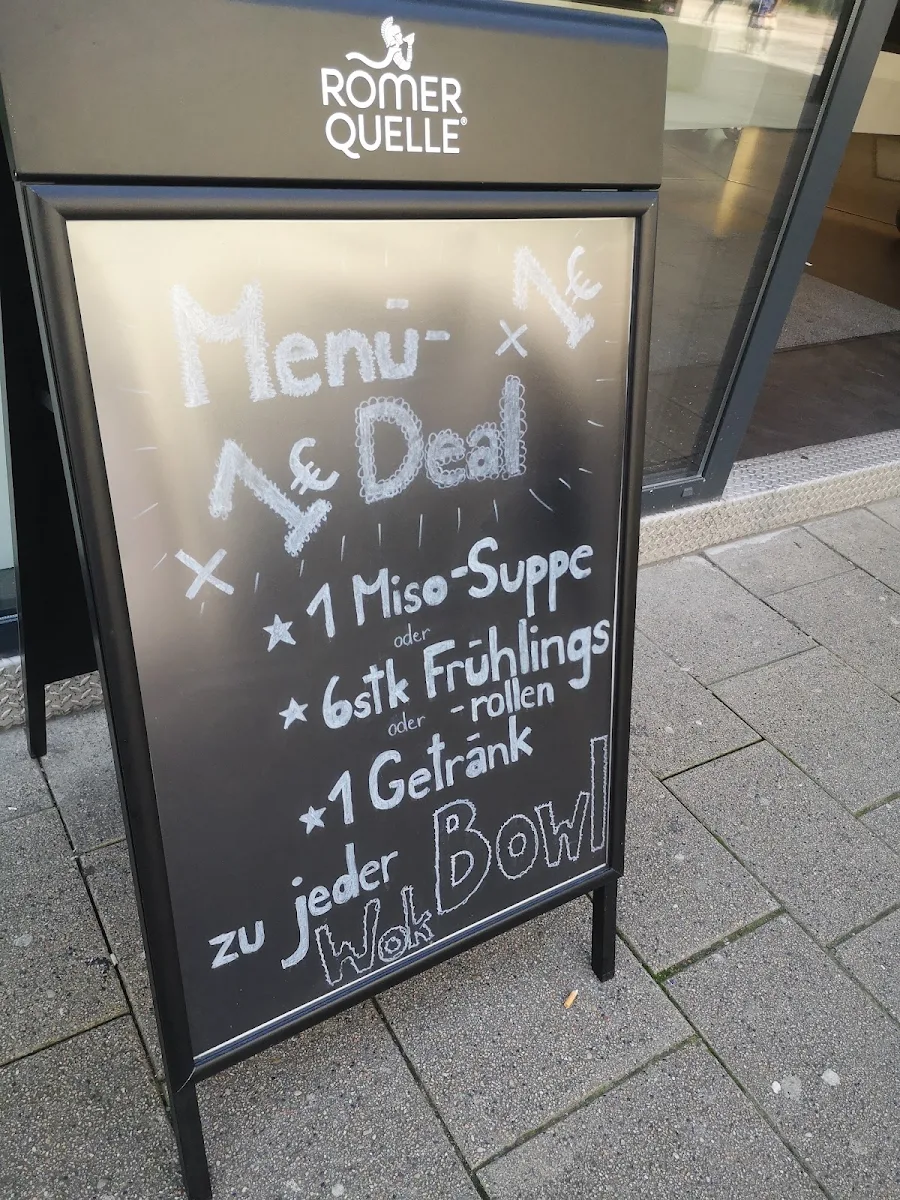 RÖMER
QUELLE®
Menü-
1€
1€ Deal
1 Miso-Suppe
oder
6stk Frühlings
oder -rollen
1 Getränk
zu jeder
Wok Bowl